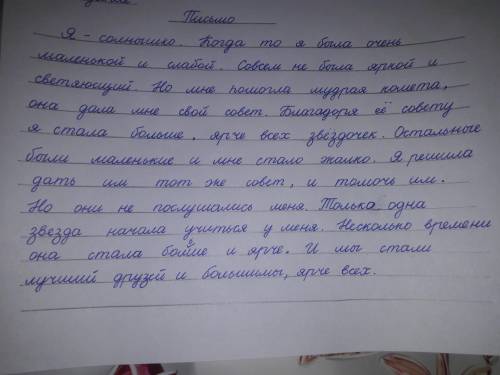 Письмо
Я - солнышко. Когда то я была очень
маленькой и слабой. Совсем не была яркой и
светяющий. Но мне помогла мудрая комета,
она дала мне свой совет. Благадоря её совету
я стала больше, ярче всех звёздочек. Остальные
были маленькие и мне стало жалко. Я решила
дать им тот же совет, и помочь им.
Но они не послушались меня. Только одна
звезда начала учиться у меня. Несколько времени
она стала больше и ярче. И мы стали
лучший друзей и большимы, ярче всех.